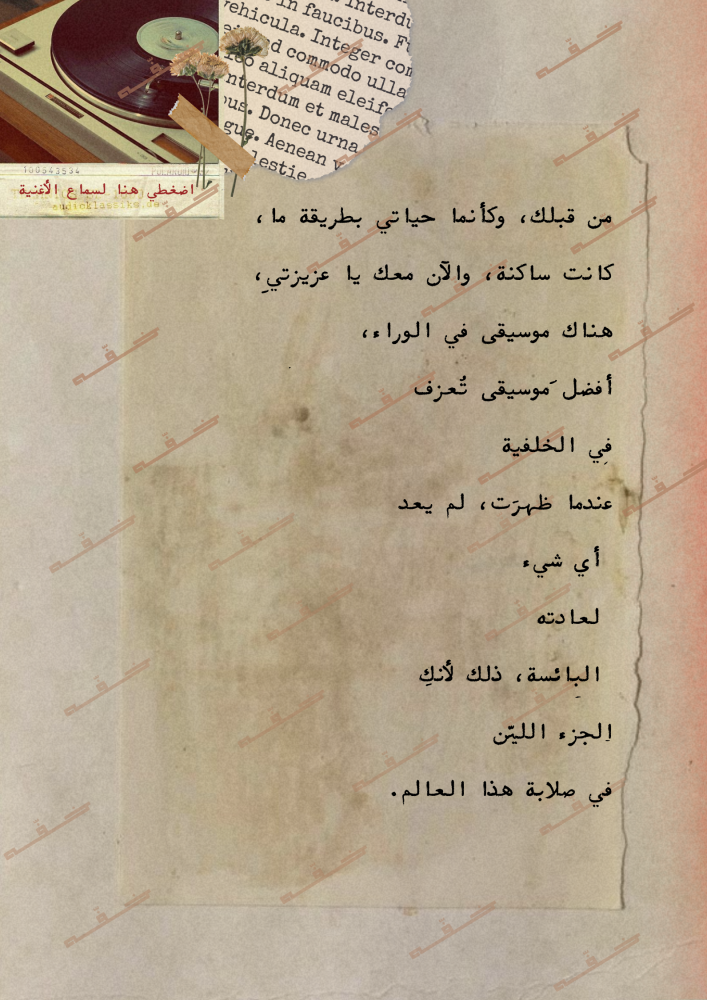 Interdu
in faucibus. Fu
vehicula. Integer con
d commodo ulla
leo aliquam eleife
nterdum et males
us. Donec urna
gue. Aenean v
lestie
100543534
اضغطي هنا لسماع الأغنية
من قبلك، وكأنما حياتي بطريقة ما،
كانت ساكنة، والآن معك يا عزيزتيِ،
هناك موسيقى في الوراء،
أفضل َموسيقى تُعزف
فِي الخلفية
عندما ظهرَت، لم يعد
أي شيء
لعادته
البِائسة، ذلك لأنكِ
اِلجزء الليّن
في صلابة هذا العالم.